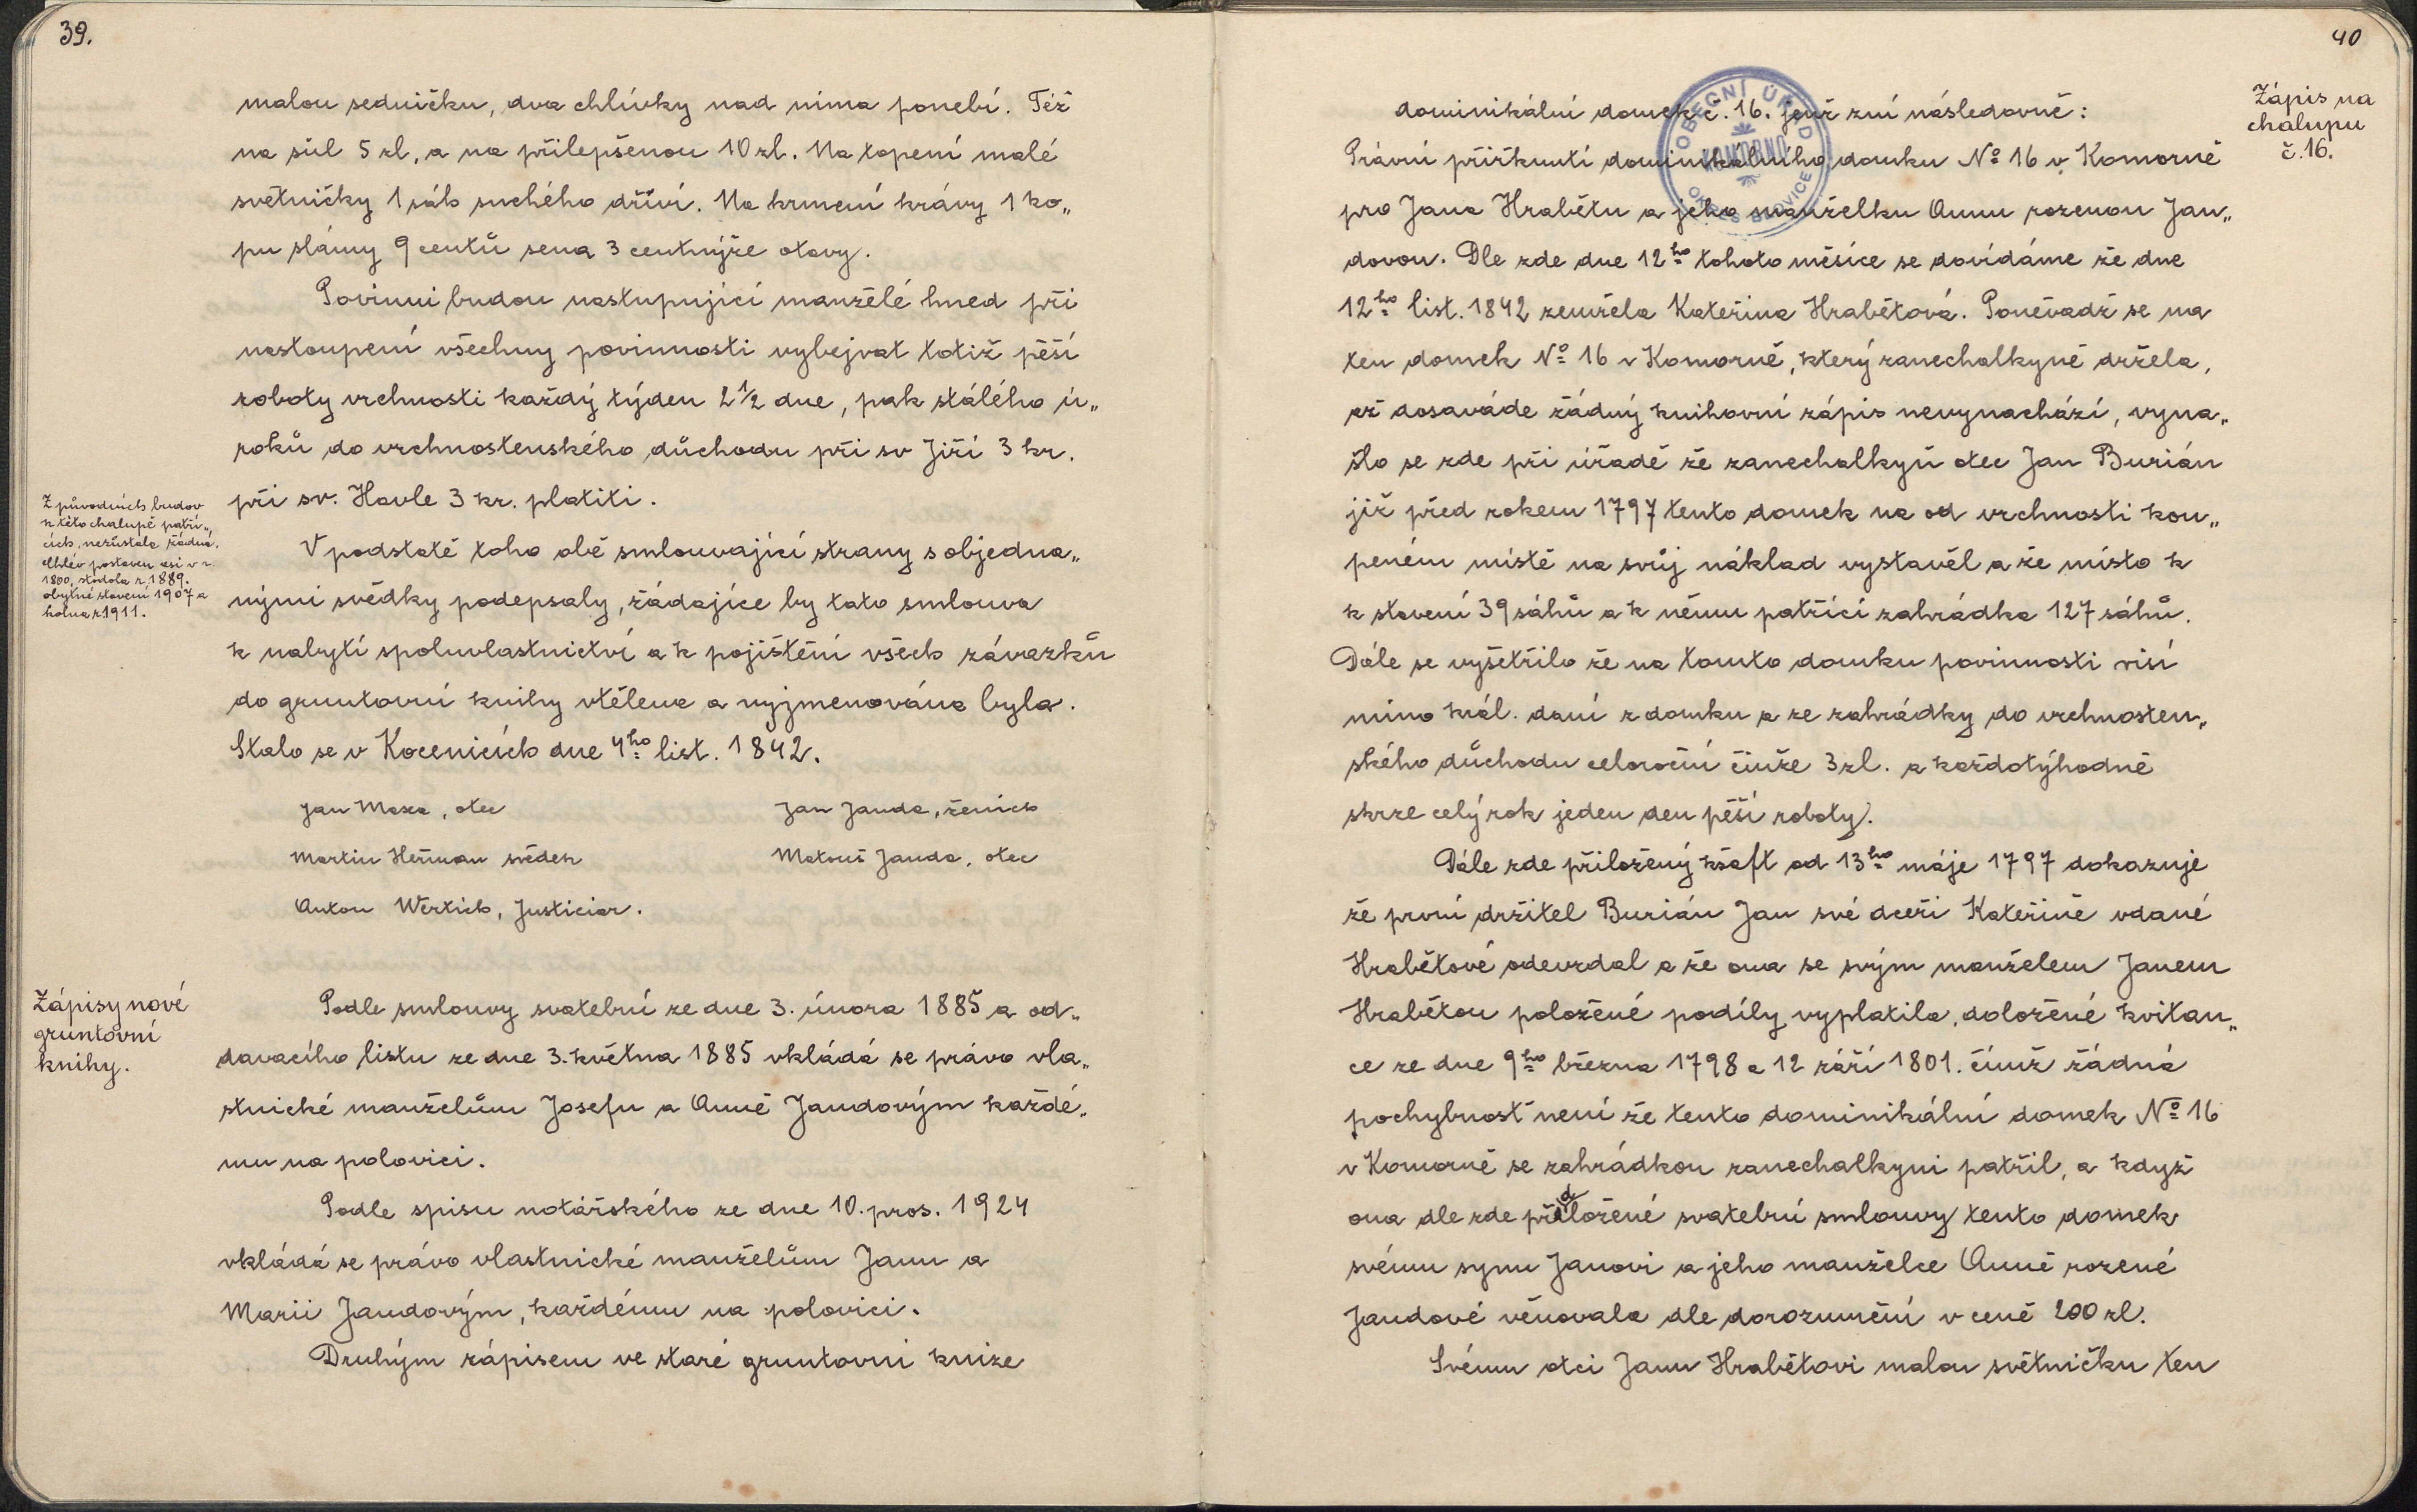 39.
malou sedničku, dva chlívky nad nima ponebí. Též
na sůl 5 zl, a na přilepšenou 10 zl. Na topení malé
světničky 1 sáh suchého dříví. Na krmení krávy 1 ko„
pu slámy 9 centů sena 3 centnýře otavy.
Povinni budou nastupující manželé hned při
nastoupení všechny povinnosti vybejvat totiž pěší
roboty vrchnosti každý týden 2 1/2 dne, pak stálého ú„
roků do vrchnostenského důchodu při sv Jiří 3 kr.
při sv. Havle 3 kr. platiti.
Z původních budov
k této chalupě patří„
cích, nezůstala žádná.
Chlév postaven asi v r.
1800, stodola r. 1889.
obytné stavení 1907 a
kolna r. 1911.
V podstatě toho obě smlouvající strany s objedna„
nými svědky podepsaly, žádajíce by tato smlouva
k nabytí spoluvlastnictví a k pojištění všech závazků
do gruntovní knihy vtělena a vyjmenována byla.
Stalo se v Kocenicích dne 4ho list. 1842.
Jan Maxa, otec Jan Janda, ženich
Martin Heřman svědek Matouš Janda, otec
Anton Wertich, Justiciar.
Zápisy nové
gruntovní
knihy.
Podle smlouvy svatební ze dne 3. února 1885 a od„
davacího listu ze dne 3. května 1885 vkládá se právo vla„
stnické manželům Josefu a Anně Jandovým každé„
mu na polovici.
Podle spisu notářského ze dne 10. pros. 1924
vkládá se právo vlastnické manželům Janu a
Marii Jandovým, každému na polovici.
Druhým zápisem ve staré gruntovni knize
40
Zápis na
chalupu
č. 16.
OBECNÍ ÚŘAD
KOMORNO
OKRES BLOVICE
dominikální domek č. 16. jenž zní následovně:
Právní přiřknutí dominikálního domku No 16 v Komorně
pro Jana Hrabětu a jeho manželku Annu rozenou Jan„
dovou. Dle zde dne 12ho tohoto měsíce se dovídáme že dne
12ho list. 1842 zemřela Kateřina Hrabětová. Poněvadž se na
ten domek No 16 v Komorně, který zanechalkyně držela,
až dosaváde žádný knihovní zápis nevynachází, vyna„
šlo se zde při úřadě že zanechalkyň otec Jan Burián
již před rokem 1797 tento domek na od vrchnosti kou„
peném místě na svůj náklad vystavěl a že místo k
k stavení 39 sáhů a k němu patřící zahrádka 127 sáhů.
Dále se vyšetřilo že na tomto domku povinnosti visí
mimo král. daní z domku a ze zahrádky do vrchnosten„
ského důchodu celoroční činže 3 zl. a každotýhodně
skrze celý rok jeden den pěší roboty.
Dále zde přiložený kšaft od 13ho máje 1797 dokazuje
že první držitel Burián Jan své dceři Kateřině vdané
Hrabětové odevzdal a že ona se svým manželem Janem
Hrabětou položené podíly vyplatila, doložené kvitan„
ce ze dne 9ho března 1798 a 12 září 1801. čímž žádná
pochybnost není že tento dominikální domek No 16
v Komorně se zahrádkou zanechalkyni patřil, a když
ona dle zde předložené svatební smlouvy tento domek
svému synu Janovi a jeho manželce Anně rozené
Jandové věnovala dle dorozumění v ceně 200 zl.
Svému otci Janu Hrabětovi malou světničku ten